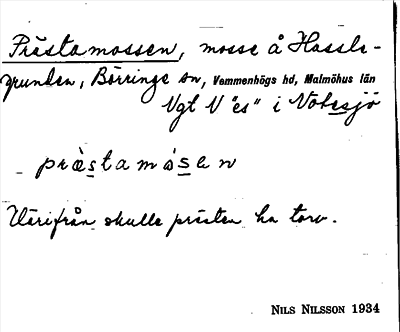 Prästamossen, mosse å Hassle-
grunden, Börringe sn, Vemmenhögs hd, Malmöhus län
Vgt V "es" i Votesjö
präs̲tamós̲en
Härifrån skulle prästen ha torv.
NILS NILSSON 1934